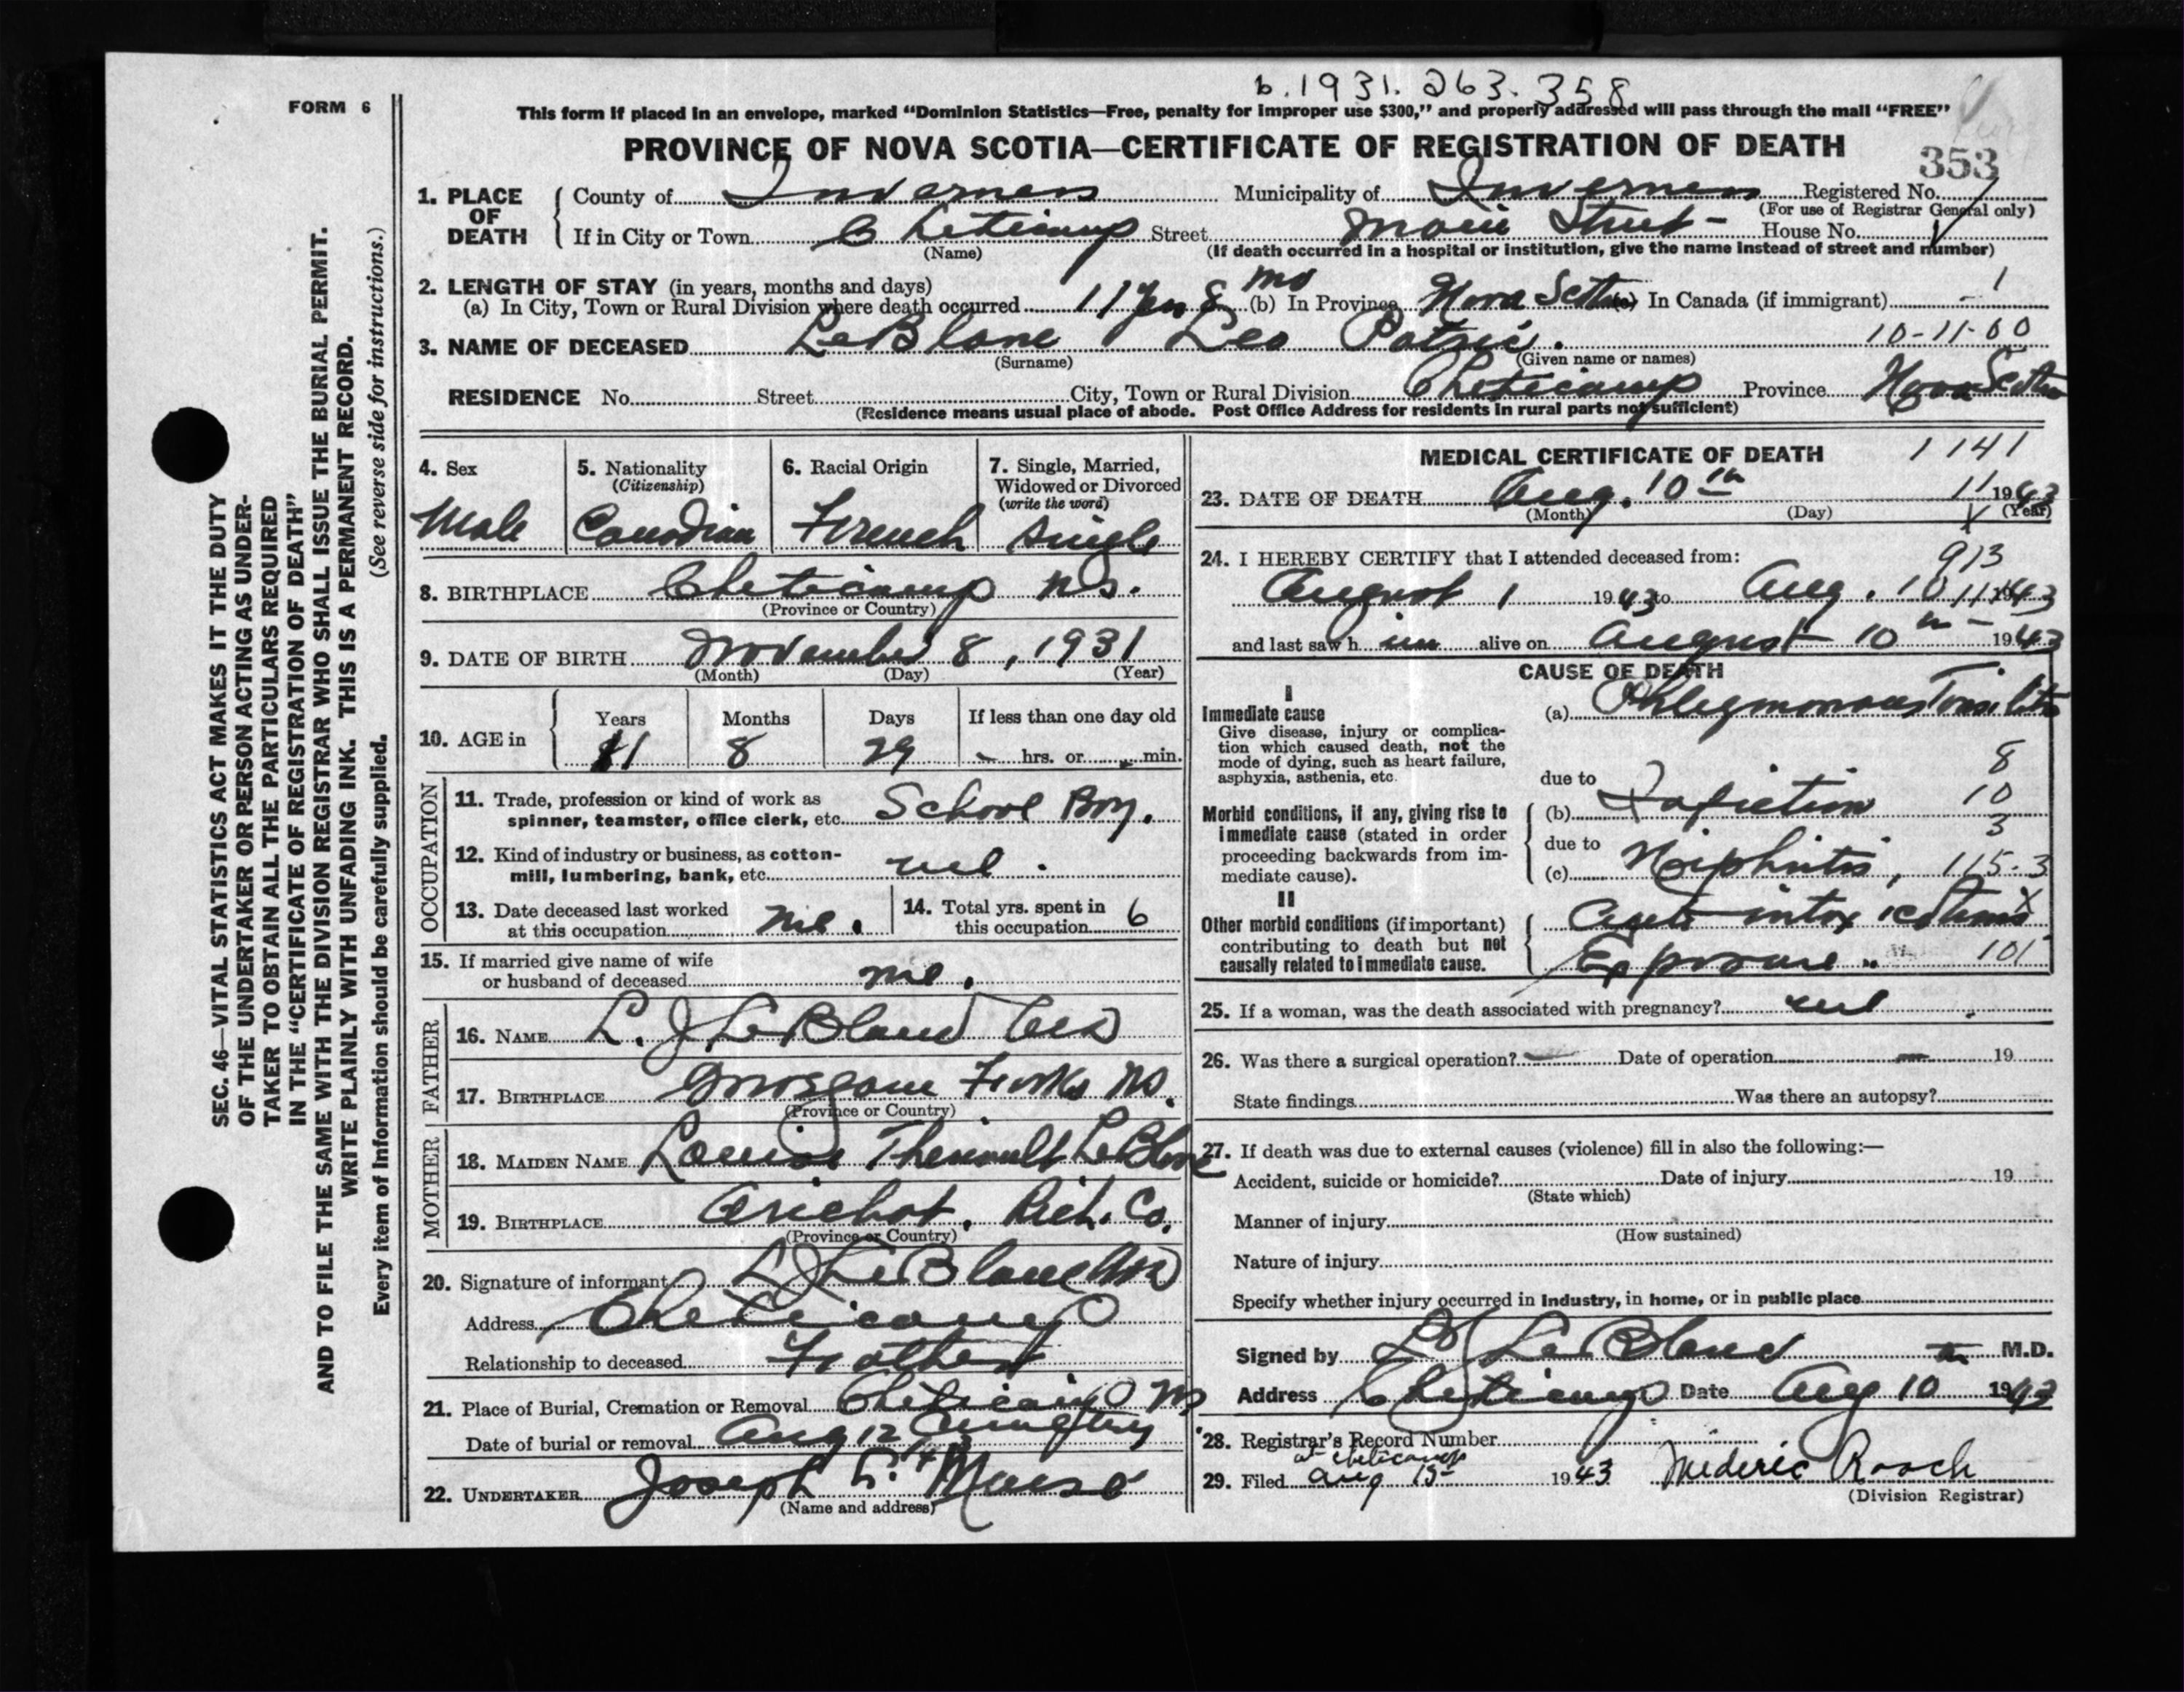 b. 1931. 263. 358
FORM 6
This form if placed in an envelope, marked "Dominion Statistics—Free, penalty for improper use $300," and properly addressed will pass through the mail "FREE"
PROVINCE OF NOVA SCOTIA—CERTIFICATE OF REGISTRATION OF DEATH
353
1. PLACE OF DEATH { County of Inverness Municipality of Inverness Registered No.
(For use of Registrar General only)
If in City or Town Cheticamp Street Main Street - House No.
(Name) (If death occurred in a hospital or institution, give the name instead of street and number)
2. LENGTH OF STAY (in years, months and days)
(a) In City, Town or Rural Division where death occurred 11 yrs 8 mo (b) In Province Nova Scotia (c) In Canada (if immigrant) - 1
3. NAME OF DECEASED LeBlanc Leo Patric. 10-11-00
(Surname) (Given name or names)
RESIDENCE No. Street City, Town or Rural Division Cheticamp Province Nova Scotia
(Residence means usual place of abode. Post Office Address for residents in rural parts not sufficient)
4. Sex 5. Nationality (Citizenship) 6. Racial Origin 7. Single, Married, Widowed or Divorced (write the word)
Male Canadian French Single
8. BIRTHPLACE Cheticamp N.S.
(Province or Country)
9. DATE OF BIRTH November 8, 1931
(Month) (Day) (Year)
10. AGE in { Years Months Days If less than one day old
11 8 29 hrs. or min.
OCCUPATION
11. Trade, profession or kind of work as
spinner, teamster, office clerk, etc. School Boy.
12. Kind of industry or business, as cotton-
mill, lumbering, bank, etc. nil.
13. Date deceased last worked
at this occupation nil.
14. Total yrs. spent in
this occupation 6
15. If married give name of wife
or husband of deceased nil.
FATHER
16. NAME L. J. LeBlanc
17. BIRTHPLACE Forks NS.
(Province or Country)
MOTHER
18. MAIDEN NAME Louise Theriault LeBlanc
19. BIRTHPLACE Arichat, Rich. Co.
(Province or Country)
20. Signature of informant L J LeBlanc MD
Address Cheticamp
Relationship to deceased Father
21. Place of Burial, Cremation or Removal Cheticamp NS
Date of burial or removal Aug 12 Cemetery
22. UNDERTAKER Joseph
(Name and address)
MEDICAL CERTIFICATE OF DEATH 1141
23. DATE OF DEATH Aug. 10th 11 1943
(Month) (Day) (Year)
24. I HEREBY CERTIFY that I attended deceased from: 913
August 1 1943 to Aug. 10 11 1943
and last saw h im alive on August 10th - 1943
CAUSE OF DEATH
I
Immediate cause (a) Phlegmonous Tonsilitis
Give disease, injury or complica-
tion which caused death, not the
mode of dying, such as heart failure,
asphyxia, asthenia, etc.
8
due to
Morbid conditions, if any, giving rise to
immediate cause (stated in order
proceeding backwards from im-
mediate cause).
(b) Infection 10
3
due to
(c) Nephritis, 115-3
II
Other morbid conditions (if important)
contributing to death but not
causally related to immediate cause.
x
Exposure 101
25. If a woman, was the death associated with pregnancy? nil
26. Was there a surgical operation? — Date of operation — 19
State findings Was there an autopsy?
27. If death was due to external causes (violence) fill in also the following:—
Accident, suicide or homicide? Date of injury 19
(State which)
Manner of injury
(How sustained)
Nature of injury
Specify whether injury occurred in industry, in home, or in public place
Signed by L J LeBlanc M.D.
Address Cheticamp Date Aug 10 1943
28. Registrar's Record Number
at Cheticamp
29. Filed Aug 15 1943 Mederic Roach
(Division Registrar)
SEC. 46—VITAL STATISTICS ACT MAKES IT THE DUTY
OF THE UNDERTAKER OR PERSON ACTING AS UNDER-
TAKER TO OBTAIN ALL THE PARTICULARS REQUIRED
IN THE "CERTIFICATE OF REGISTRATION OF DEATH"
AND TO FILE THE SAME WITH THE DIVISION REGISTRAR WHO SHALL ISSUE THE BURIAL PERMIT.
WRITE PLAINLY WITH UNFADING INK. THIS IS A PERMANENT RECORD.
Every item of Information should be carefully supplied. (See reverse side for instructions.)